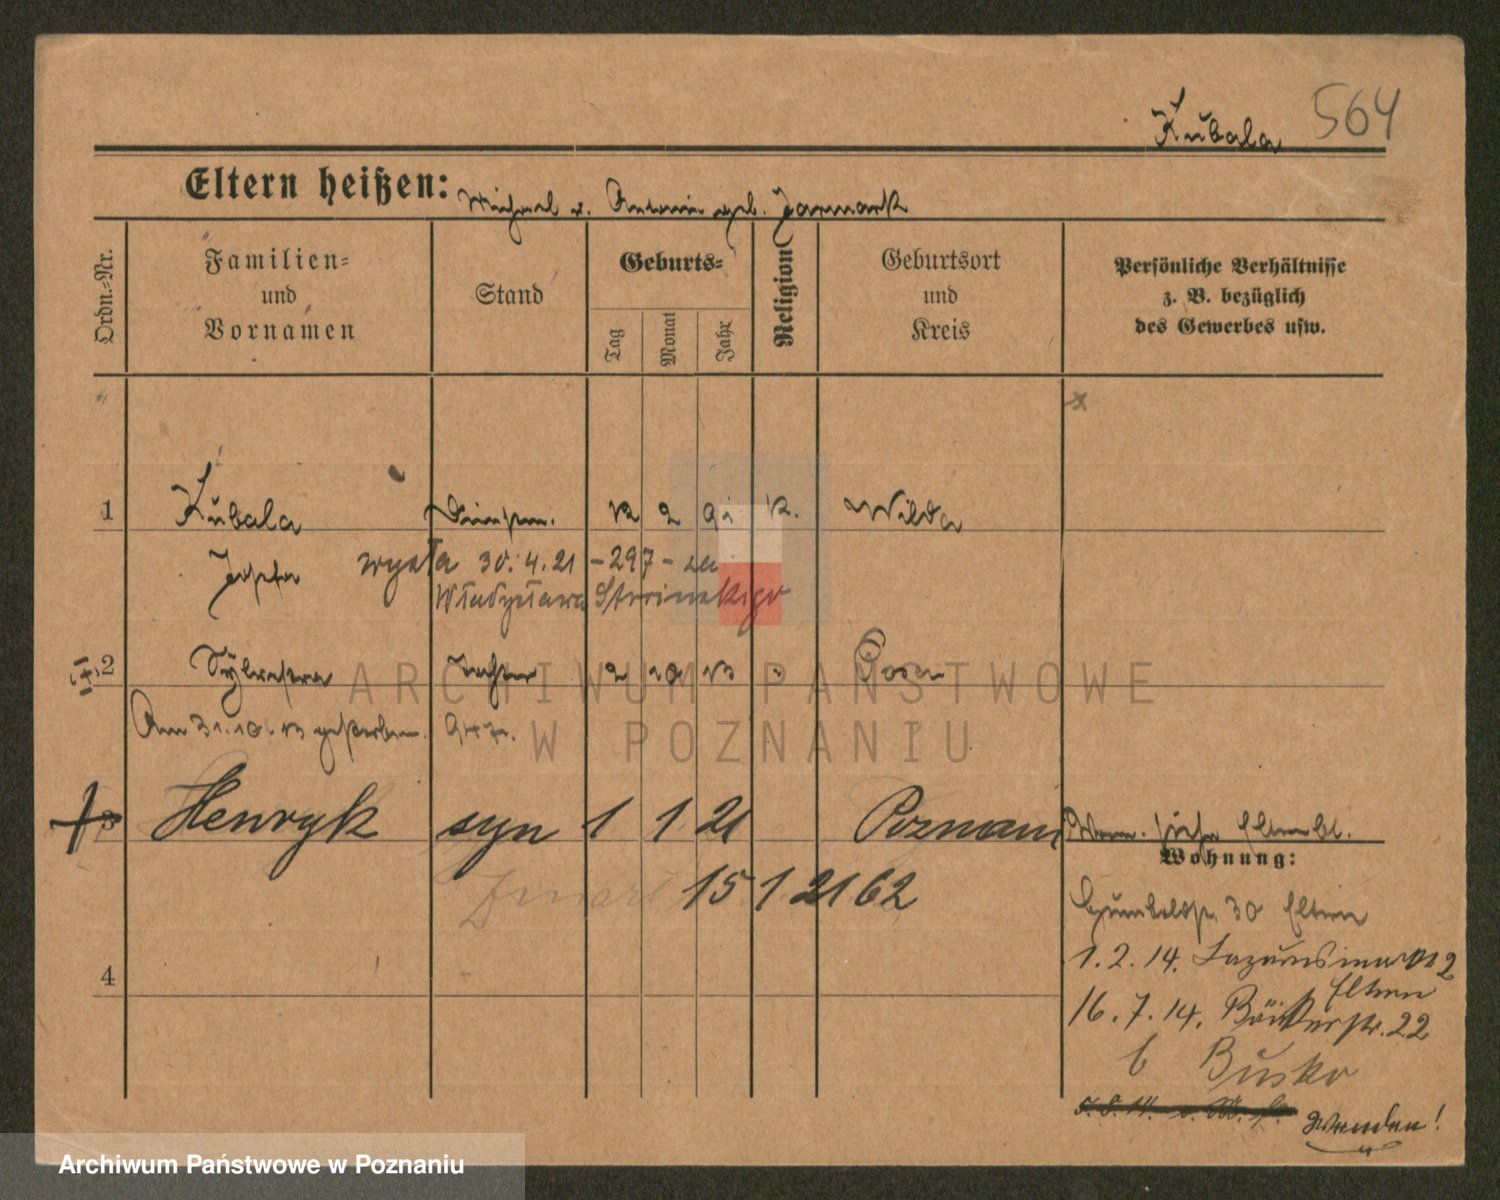 Kubala 564
Eltern heißen: Michael u. Antonie geb. Jarmark
Ordn.-Nr.
Familien-
und
Vornamen
Stand
Geburts-
Tag
Monat
Jahr
Religion
Geburtsort
und
Kreis
Persönliche Verhältnisse
z. B. bezüglich
des Gewerbes usw.
1 Kubala 2 K. Wilda
Josefa wyszła 30.4.21 - 297 - za
Władysława
2 Sylvestra Tochter 2 10 13 Posen
Am 31.10.13 gestorben.
3 Henryk syn 1 1 21 Poznań siehe Elternbl.
Wohnung:
15 1 21 62
30 Eltern
4
1.2.14. 2
Eltern
16.7.14. Bäckerstr. 22
b Busko
Wenden!
ARCHIWUM PAŃSTWOWE
W POZNANIU
Archiwum Państwowe w Poznaniu